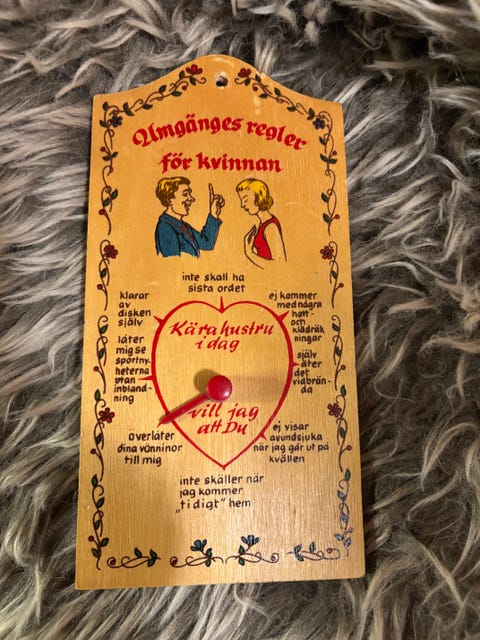 Umgänges regler
för kvinnan
inte skall ha
sista ordet
klarar
av
disken
själv
ej kommer
med några
hatt-
och
klädräk
ningar
Kära hustru
i dag
låter
mig se
sportny-
heterna
utan
inbland-
ning
själv
äter
det
vidbrän-
da
vill jag
att Du
överlåter
dina väninnor
till mig
ej visar
avundsjuka
när jag går ut på
kvällen
inte skäller när
jag kommer
„tidigt" hem